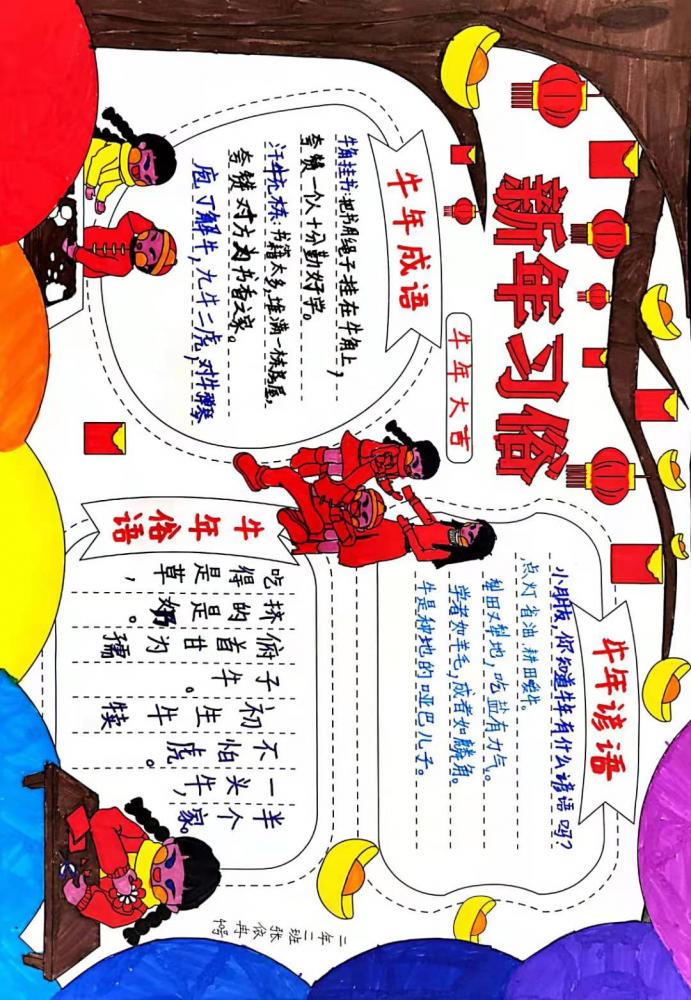 新年习俗
牛年大吉
牛年成语
牛角挂书:把书用绳子挂在牛角上,
夸赞一个人十分勤好学。
汗牛充栋:书籍太多,堆满一栋房屋,
夸赞对方为书香之家。
庖丁解牛,九牛二虎,对牛弹琴
牛年谚语
小朋友,你知道牛年有什么谚语吗?
点灯省油,耕田爱牛。
犁田又犁地,吃盐有力气。
学者如羊毛,成者如麟角。
牛是种地的哑巴儿子。
牛年俗语
吃得是草,
挤的是奶。
俯首甘为孺
子牛。
初生牛犊
不怕虎。
一头牛,
半个家。
二年二班
张依冉